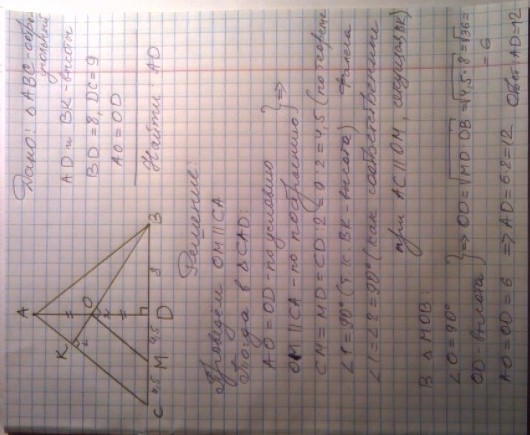 Дано: △ABC остро-
угольный
AD и BK - высоты
BD = 8, DC = 9
AO = OD
Найти: AD
A
K
O
B
8
D
4,5
M
4,5
C
1
2
Решение:
Проведём OM || CA
Тогда в △CAD:
AO = OD - по условию
OM || CA - по построению } =>
CM = MD = CD : 2 = 9 : 2 = 4,5 (по теореме
Фалеса)
∠1 = 90° (т.к BK - высота)
∠1 = ∠2 = 90° (как соответственные
при AC || OM, секущая BK)
В △ MOB:
∠O = 90°
OD - высота } => OD = √MD·OB = √4,5·8 = √36 =
= 6
AO = OD = 6 => AD = 6·2 = 12
Ответ: AD = 12